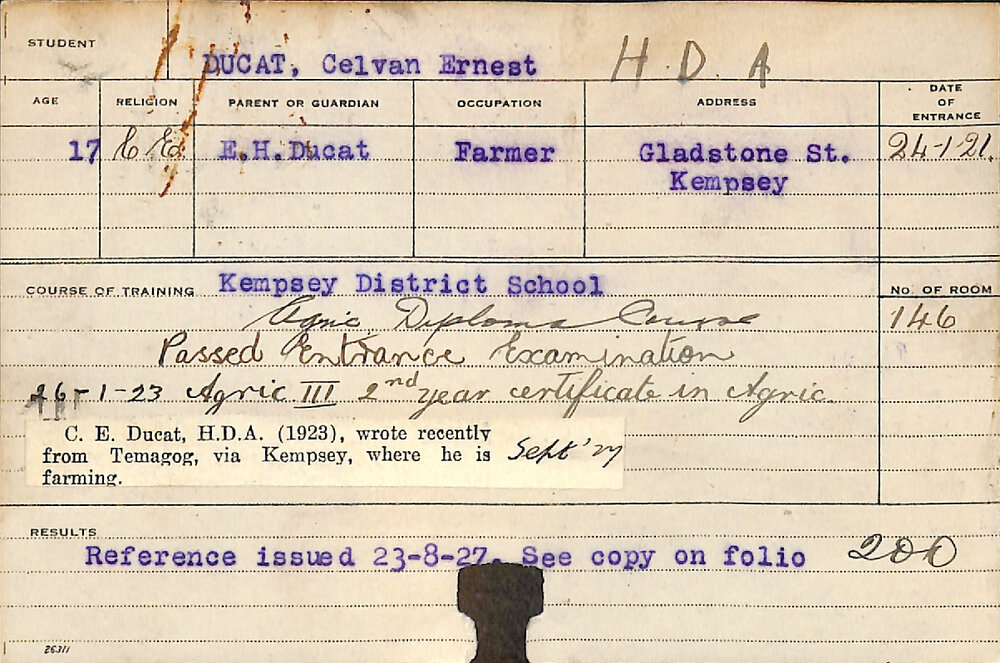 STUDENT
DUCAT, Celvan Ernest H. D. A
AGE RELIGION PARENT OR GUARDIAN OCCUPATION ADDRESS DATE OF ENTRANCE
17 C of E. E.H.Ducat Farmer Gladstone St. 24-1-21.
Kempsey
COURSE OF TRAINING Kempsey District School No. OF ROOM
Agric. Diploma Course 146
Passed Entrance Examination
26-1-23 Agric III 2nd year certificate in Agric.
C. E. Ducat, H.D.A. (1923), wrote recently
from Temagog, via Kempsey, where he is
farming.
Sept '27
RESULTS
Reference issued 23-8-27. See copy on folio 200
26311